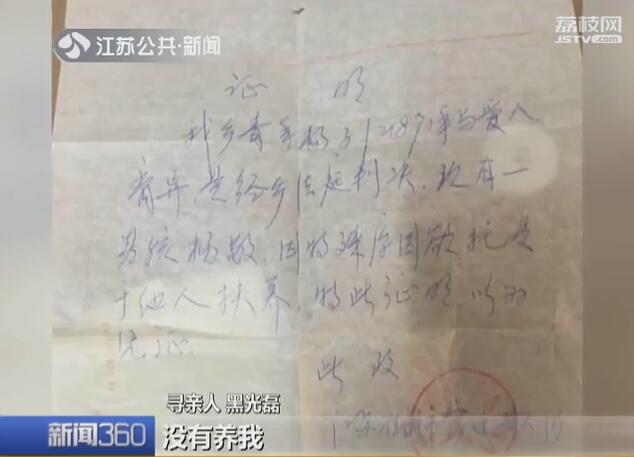 江苏公共·新闻
荔枝网
JSTV.com
证 明
我乡青年杨 1987年与爱人
离异,是经乡法庭判决,现有一
男孩杨敏,因特殊原因欲托负
于他人扶养,特此证明,以为
见证
此致
寻亲人 黑光磊
新闻360
没有养我